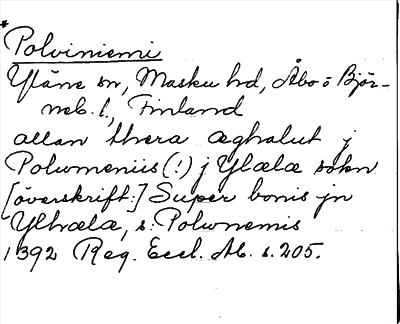 *
Polviniemi
Yläne sn, Masku hd, Åbo o Björ-
neb. l., Finland
allan thera æghalut j
Polwmeniis (!) j Ylælæ sokn
[överskrift:] Super bonis jn
Ylhælæ, s: Polwnemis
1392 Reg. Eccl. Ab. s. 205.